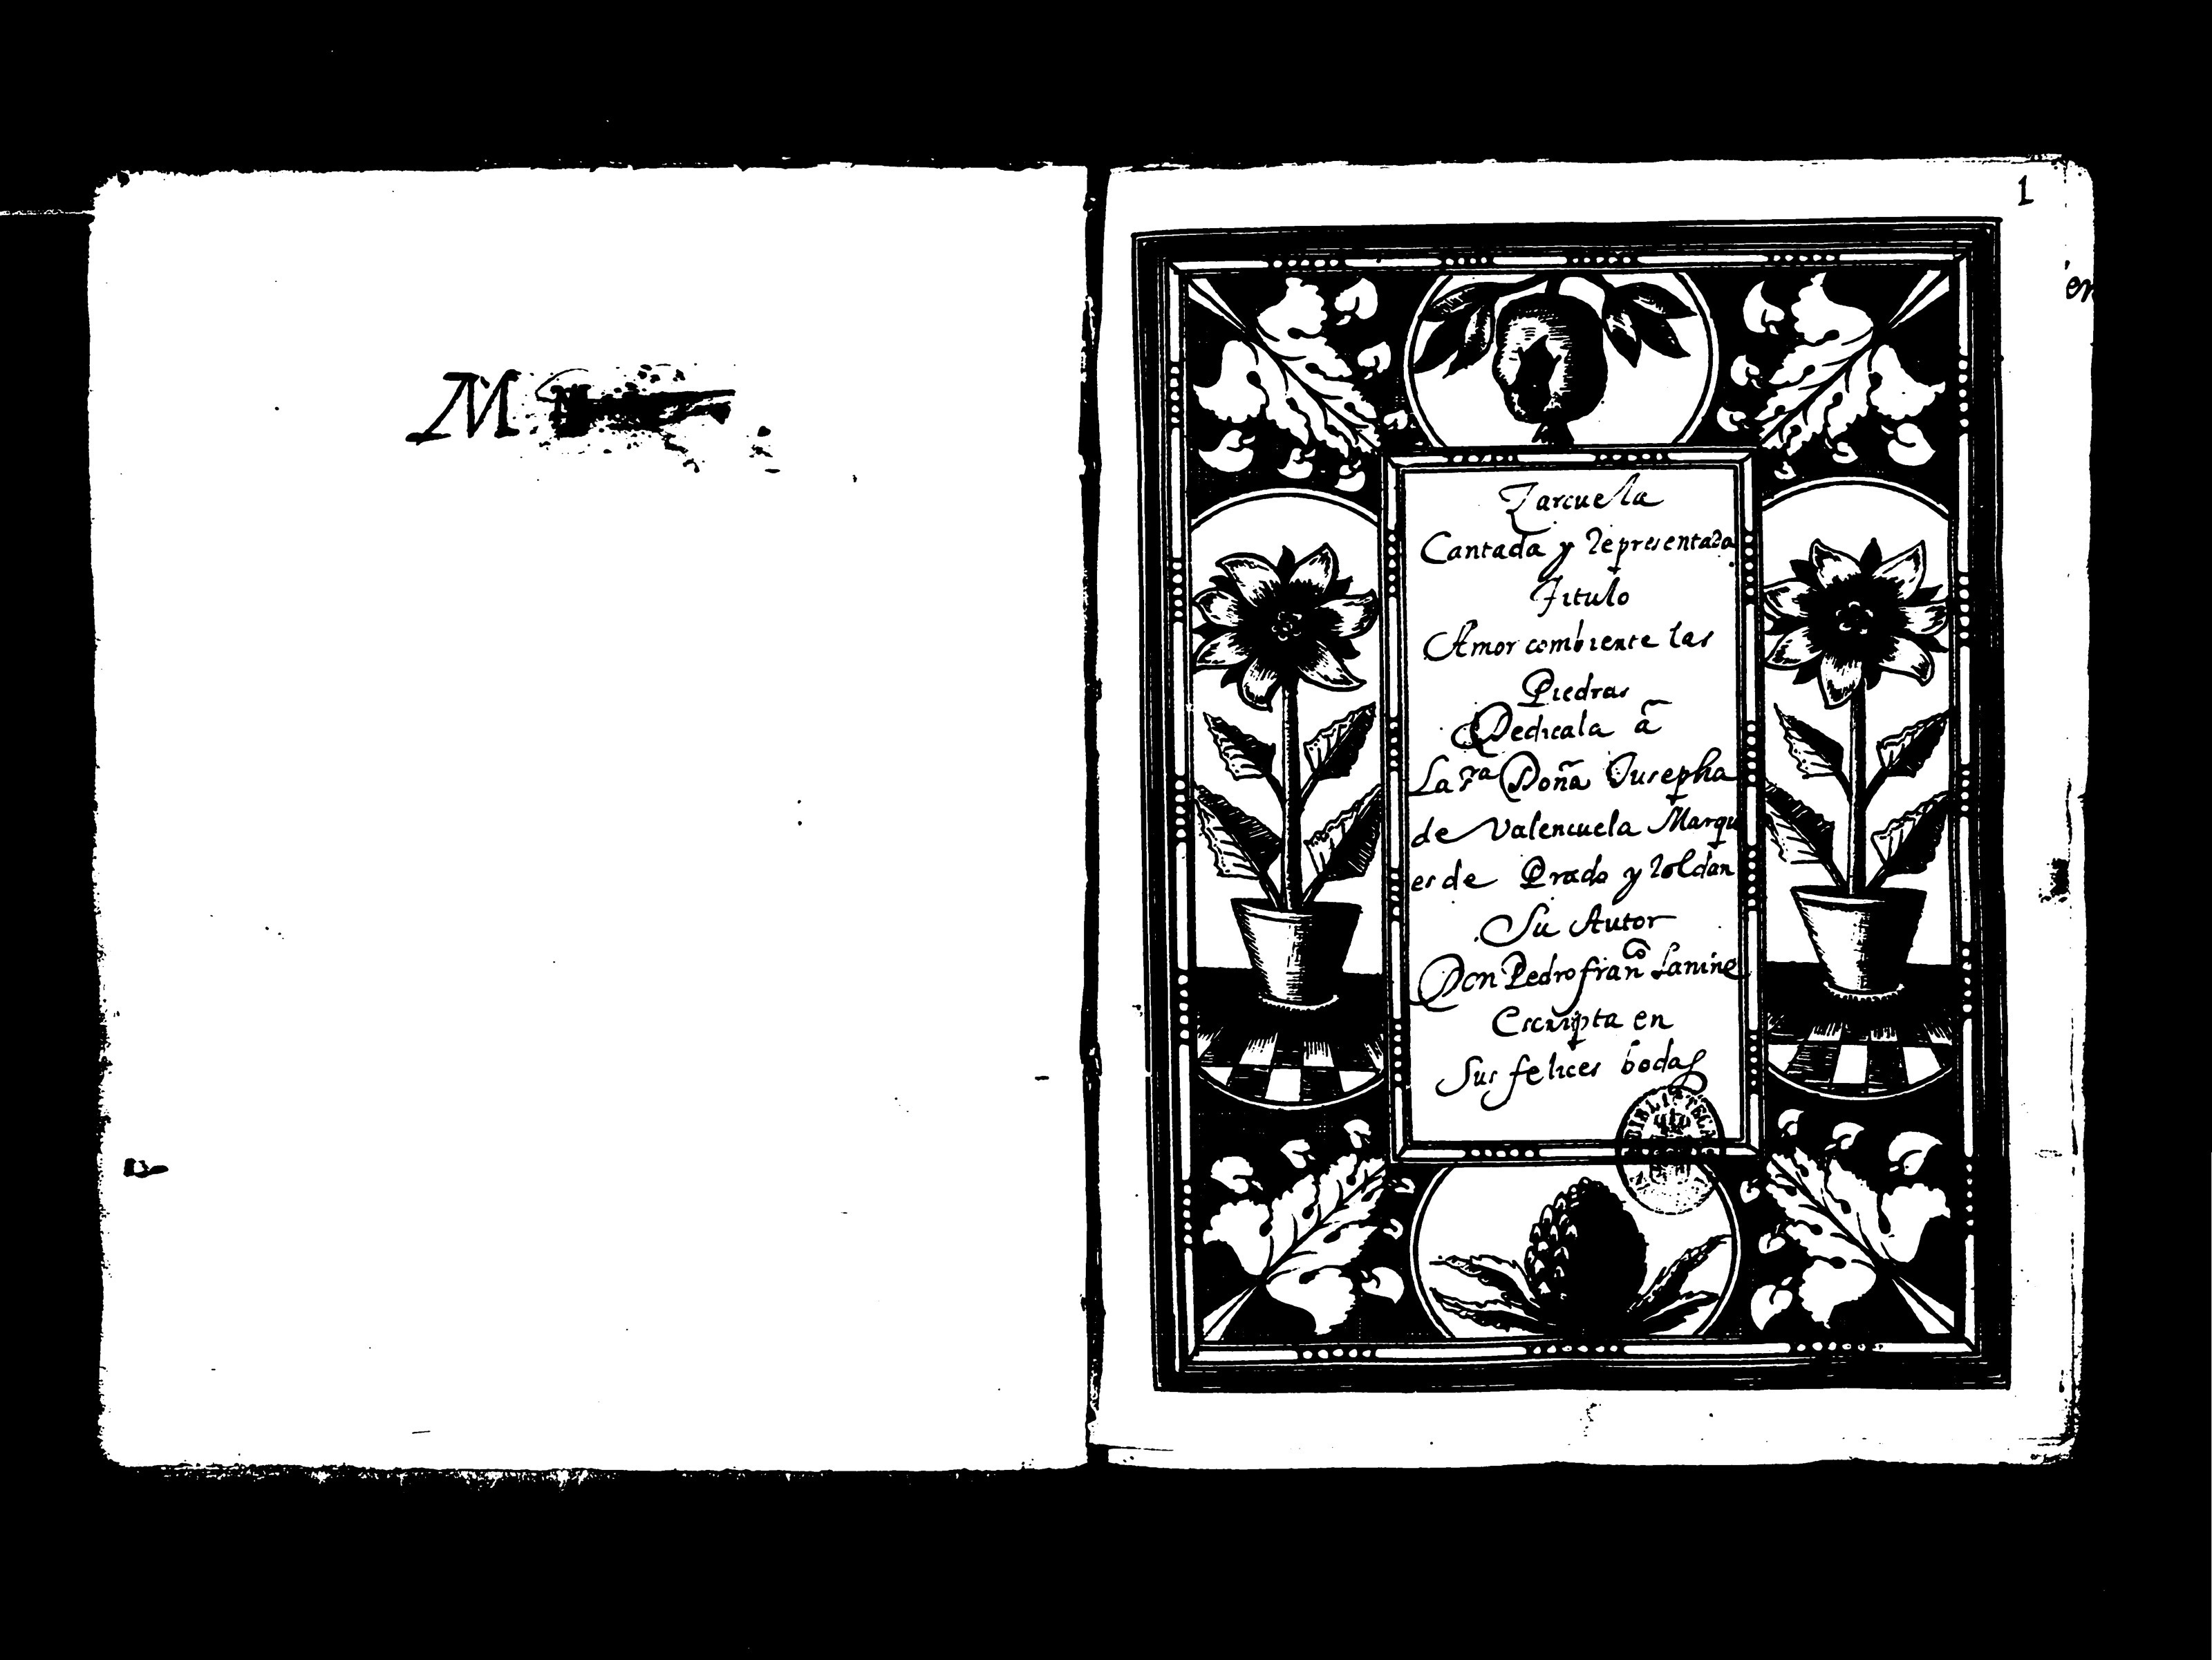 M
1
Zarcuela
Cantada y representada
Titulo
Amor combierte las
Piedras
Dedicala ã
La s.ra Doña Jusepha
de Valencuela Marqu
es de Prado y Roldan
Su Autor
Don Pedro fran.co Lanine
Escripta en
Sus felices bodas
BIBLIOTECA
en